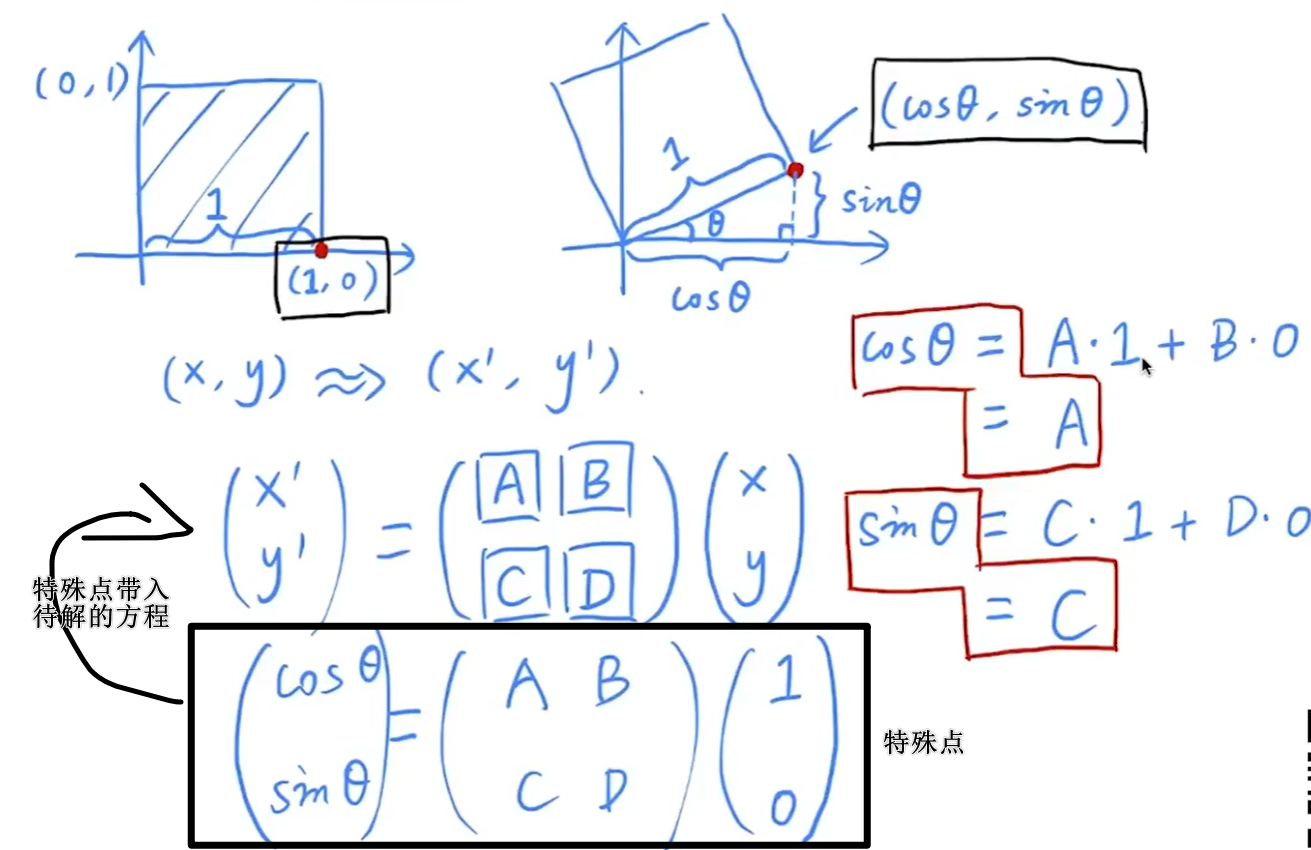 (0,1)
1
(1,0)
1
θ
(cosθ, sinθ)
sinθ
cosθ
(x,y) ⇝ (x', y').
cosθ = A·1 + B·0
= A
(x' y') = (A B C D) (x y)
sinθ = C·1 + D·0
= C
特殊点带入
待解的方程
(cosθ sinθ) = (A B C D) (1 0)
特殊点